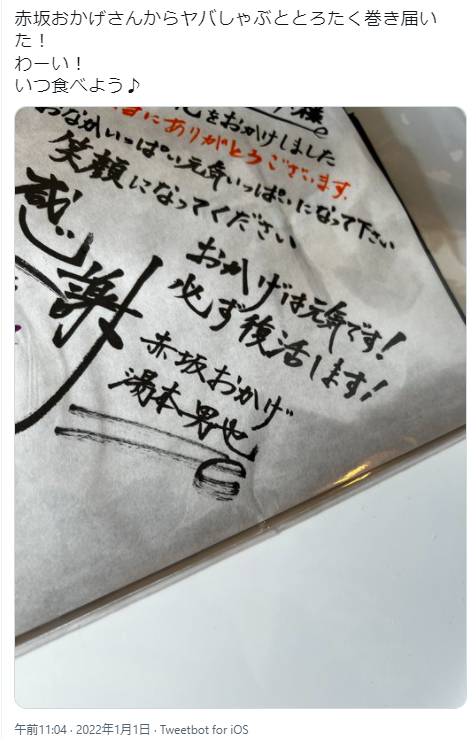 赤坂おかげさんからヤバしゃぶととろたく巻き届い
た！
わーい！
いつ食べよう♪
をおかけしました
にありがとうございます。
おなかいっぱい元気いっぱいになって下さい
笑顔になってください
感謝
おかげは元気です！
必ず復活します！
赤坂おかげ
湯本男也
午前11:04 · 2022年1月1日 · Tweetbot for iOS